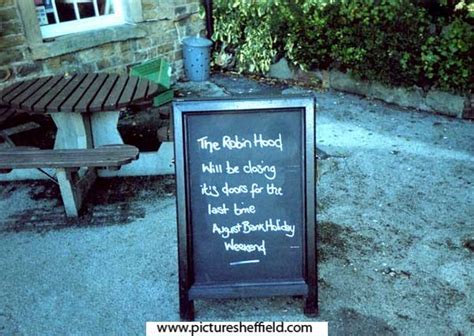 The Robin Hood
Will be closing
it's doors for the
last time
August Bank Holiday
Weekend
www.picturesheffield.com